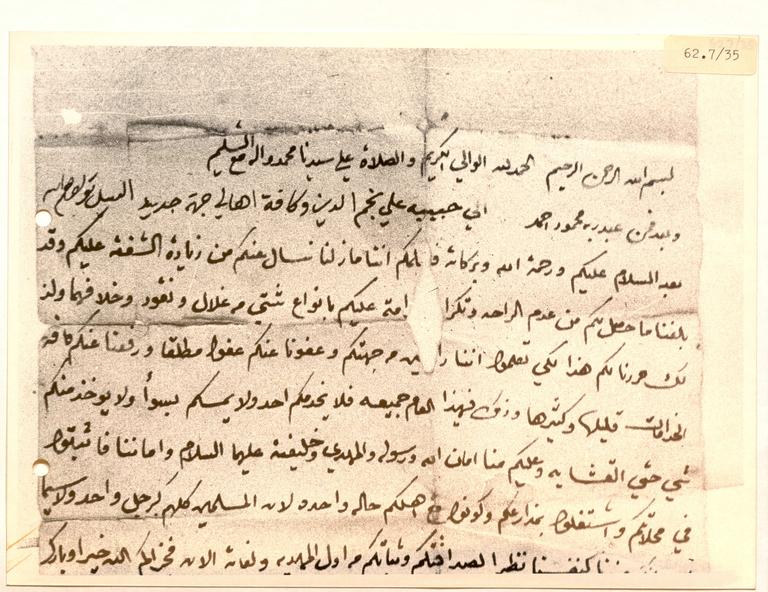 62.7/35
بسم الله الرحمن الرحيم الحمد لله الوالي الكريم والصلاة علي سيدنا محمد واله مع التسليم
وبعد فمن عبد ربه محمود احمد الي حبيبيه علي نجم الدين وكافة اهالي جهة جديد النيل
بعد السلام عليكم ورحمة الله وبركاته اننا مازلنا نسال عنكم من زيادة الشفقة عليكم وقد
بلغنا ما حصل لكم من عدم الراحه وتكرا امة عليكم بانواع شتي من غلال ونقود وخلافهما ولذ
لك حررنا لكم هذا لكي تعلموا اننا من جهتكم وعفونا عنكم عفوا مطلقا ورفعنا عنكم كافة
قليلها وكثيرها وذلك فهذا العام جميعه فلا يخدمكم احد ولا يمسكم بسوأ ولا يوخذ منكم
شي حتي القشايه وعليكم منا امان الله ورسوله والمهدي وخليفته عليهما السلام واماننا فاثبتوا
في محلاتكم واشتغلوا بمذارعكم وكونوا مع اهلكم حاله واحده لان المسلمين كلهم كرجل واحد ولاسيما
نظرا لصداقتكم وثباتكم من اول المهديه ولغاية الان فجزاكم الله خيرا وبارك